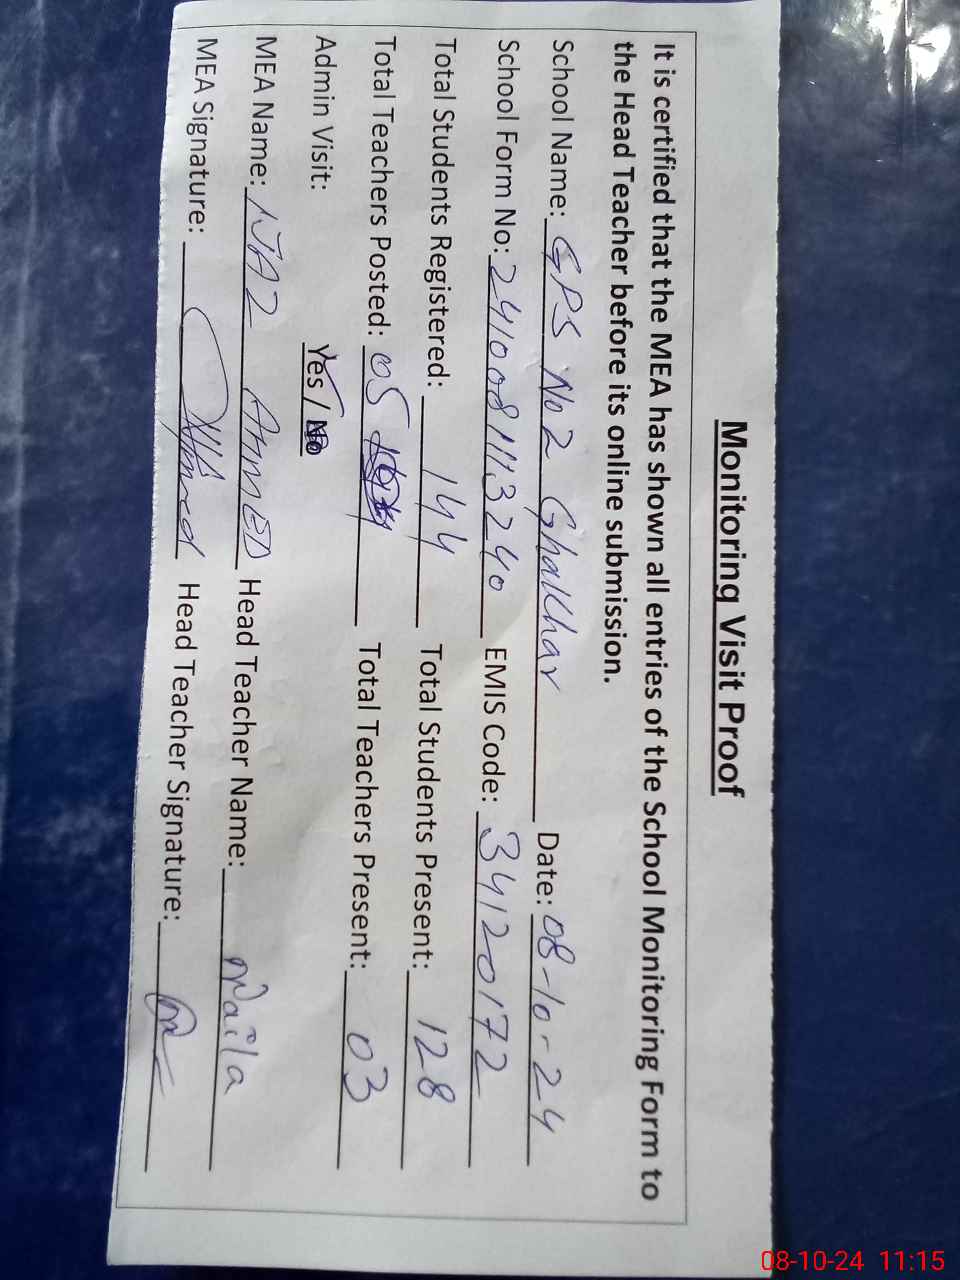 Monitoring Visit Proof
It is certified that the MEA has shown all entries of the School Monitoring Form to
the Head Teacher before its online submission.
School Name: GPS No 2 Ghakhar Date: 08-10-24
School Form No: 241008113240 EMIS Code: 34120172
Total Students Registered: 144 Total Students Present: 128
Total Teachers Posted: 05 Total Teachers Present: 03
Admin Visit: Yes / No
MEA Name: IJAZ AHMED Head Teacher Name: Naila
MEA Signature: Ahmed Head Teacher Signature:
08-10-24 11:15